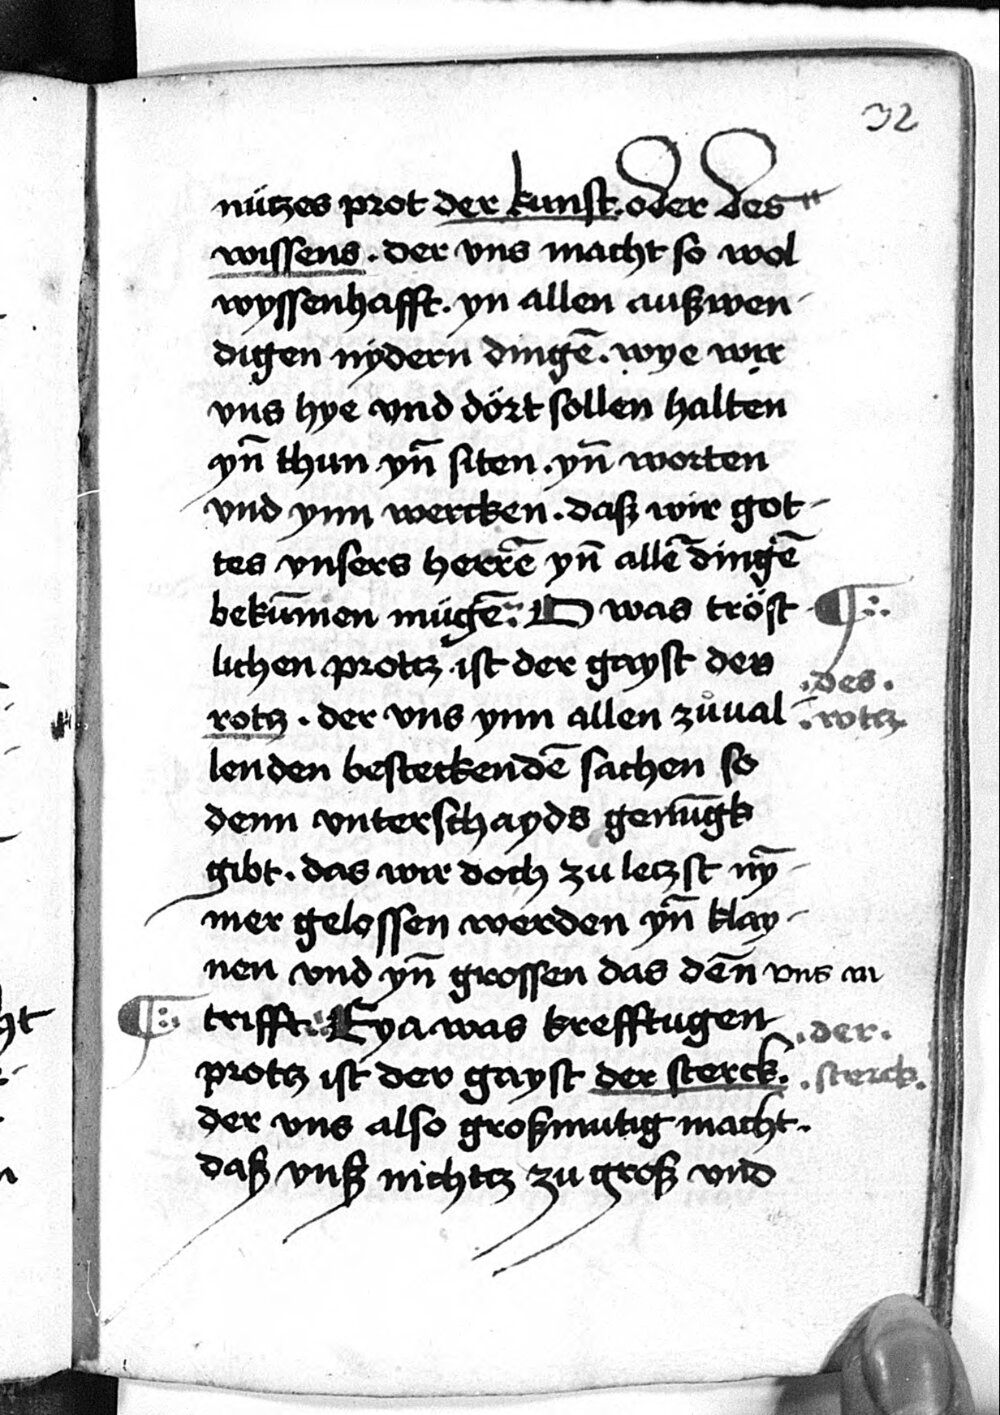 32
nützes prot der kunst. oder des
wissens. der vns macht so wol
wyssenhafft. yn allen außwen-
digen nydern dingē. wye wir
vns hye vnd dört sollen halten
yn̄ thun yn̄ siten. yn̄ worten
vnd ynn wercken. daß wir got-
tes vnsers herrē yn̄ allē dingē
bekūmen mügē: O was tröst-
lichen protz ist der gayst des
.des.
rotz. der vns ynn allen zůual-
.rotz.
lenden besteckendē sachen so
denn vnterschayds genūgk
gibt. das wir doch zu leczst nȳ-
mer gelossen werden yn̄ klay-
nen vnd yn̄ grossen das dēn vns an
trifft: Eya was krefftugen
.der.
protz ist der gayst der sterck.
.sterck.
der vns also großmutig macht.
daß vnß nichtz zu groß vnd